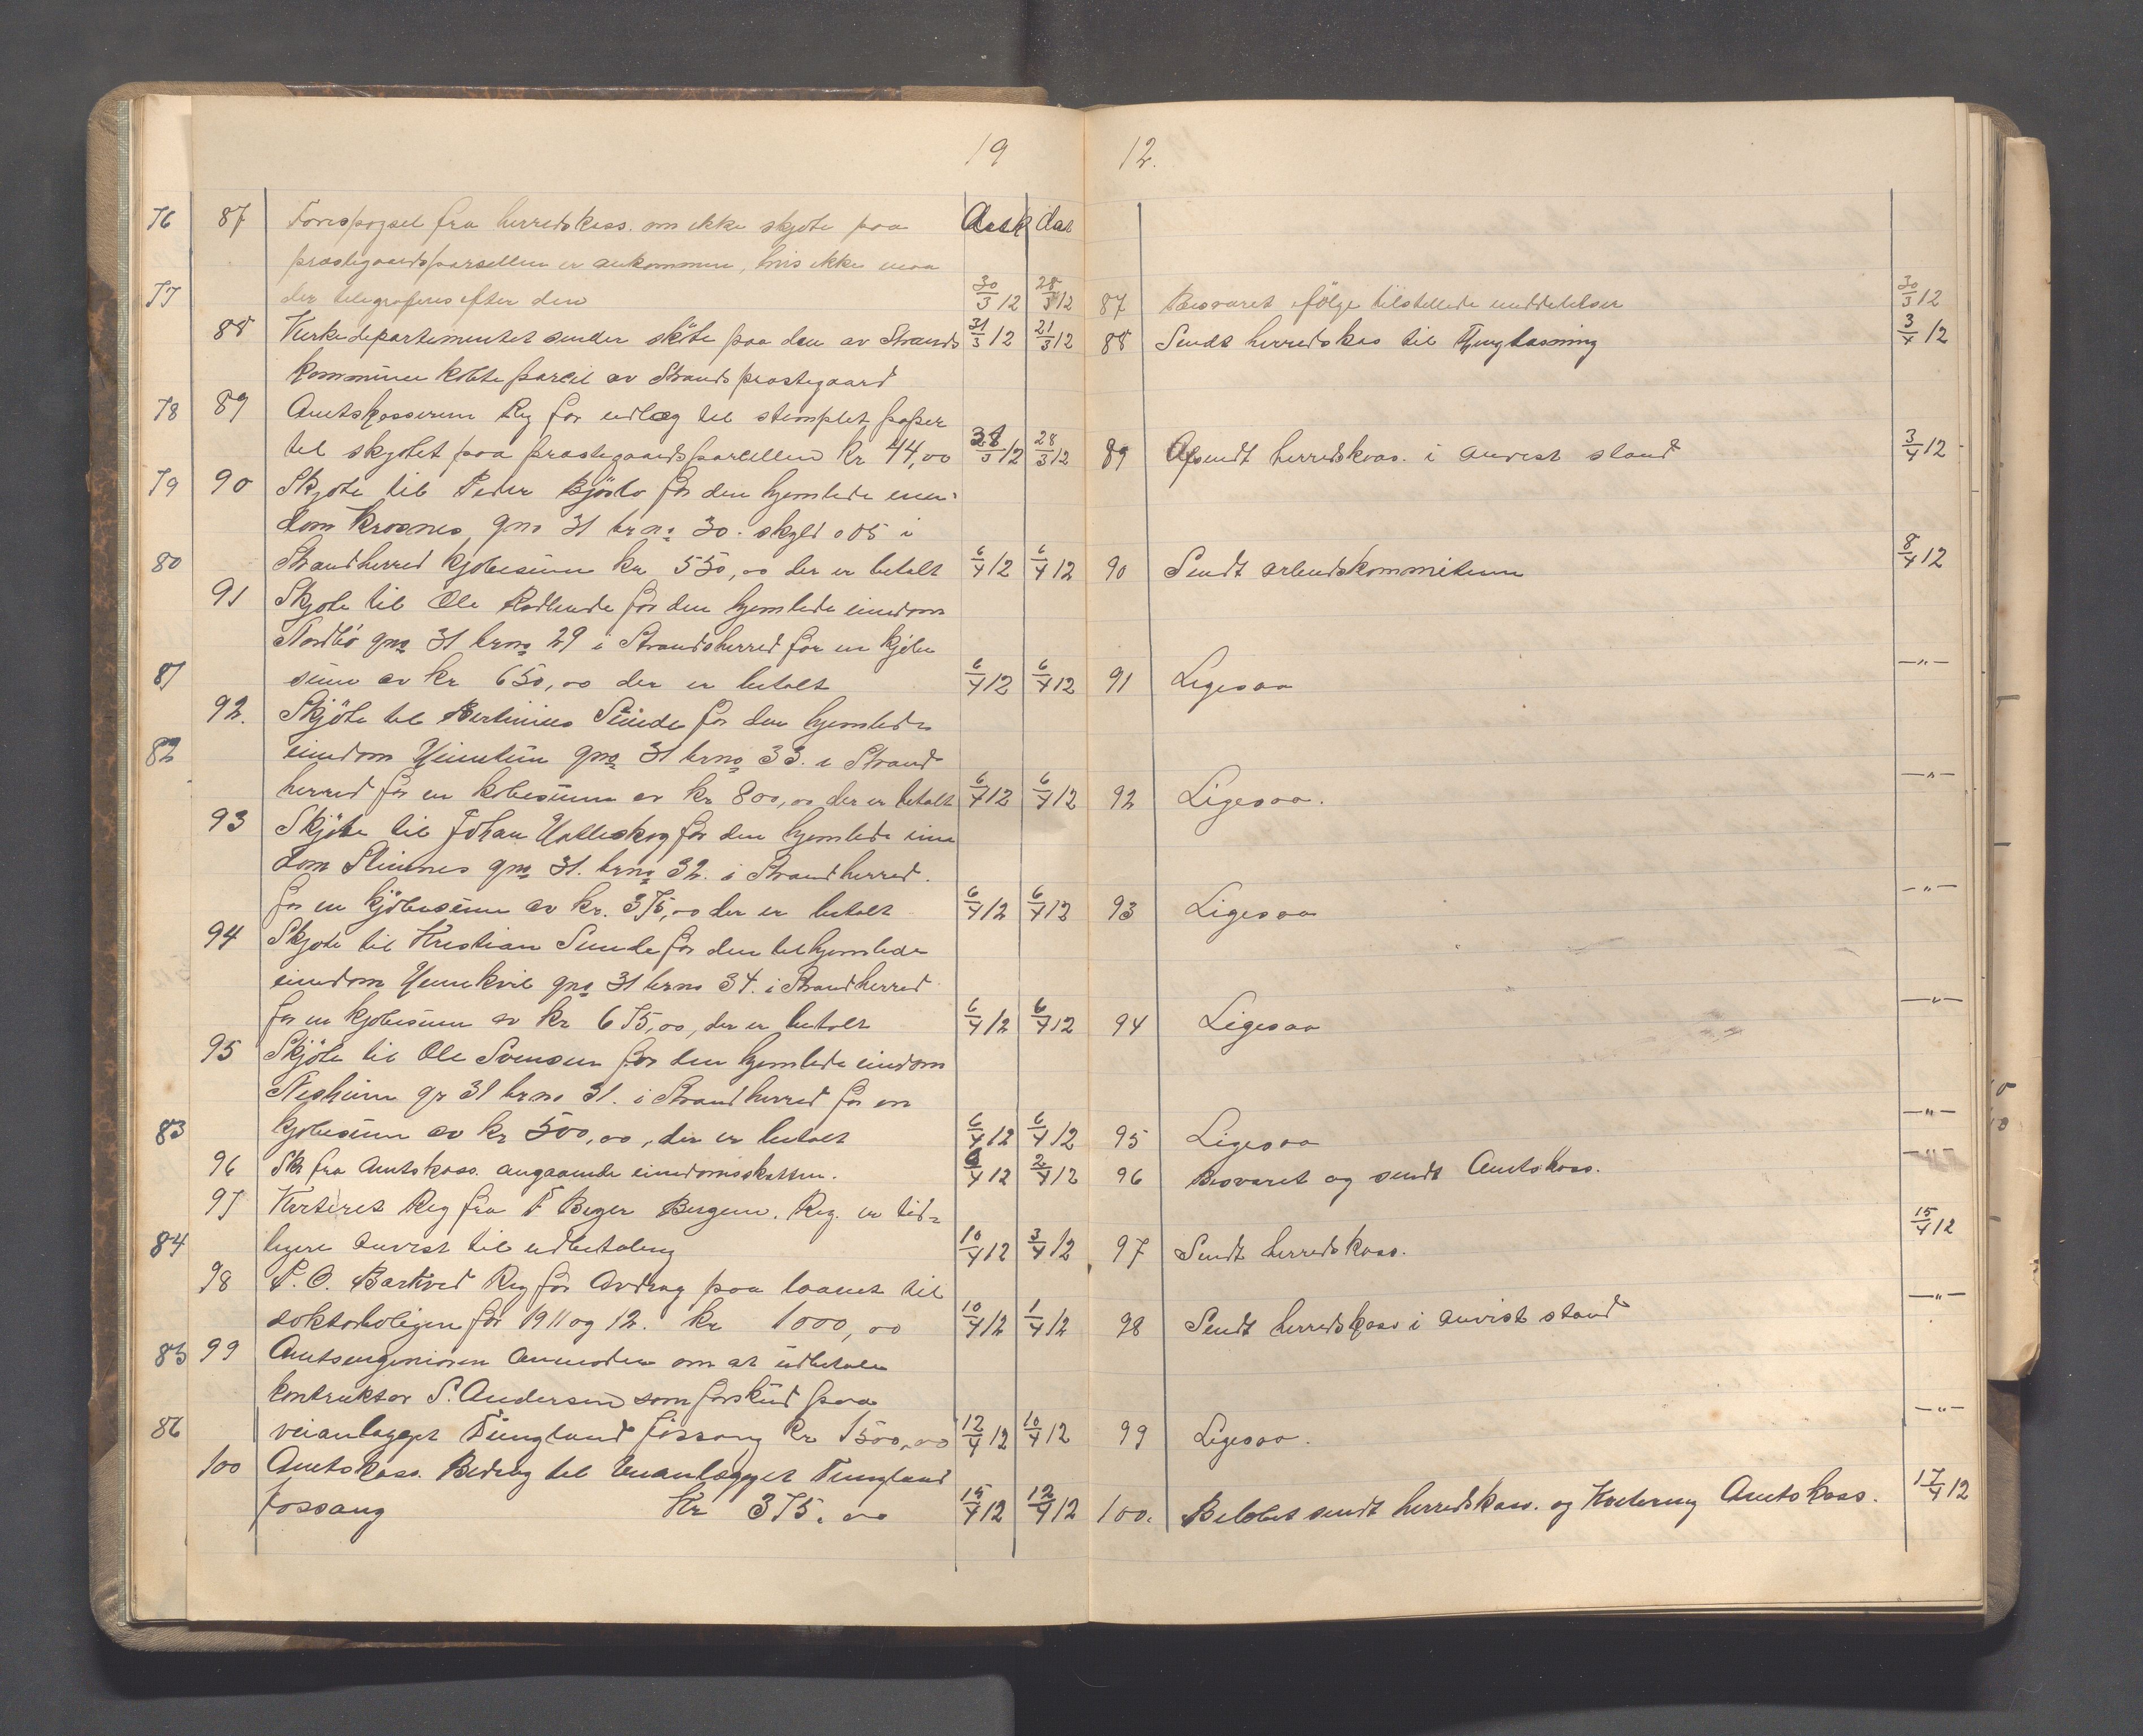 19
12.
76
87
Forespørsel fra herredskass. om ikke skjøte paa
Ank
dat
præstegaardsparsellen er ankommen, hvis ikke maa
77
der telegraferes efter den
30/3 12
28/3 12
87
Besvaret ifølge tilstellede meddelelser
30/3 12
88
Kirkedepartementet sender skøte paa den av Strands
31/3 12
21/3 12
88
Sendt herredskas til tinglæsning
3/4 12
kommune købte parcel av Strands præstegaard
78
89
Amtskassereren Reg for udlæg til stemplet paper
til skjøtet paa præstegaardsparcellen kr 44,00
28/3 12
89
Afsendt herredskas. i anvist stand
3/4 12
79
90
Skjøte til Peder for den hjemlede eien-
dom Krosnes gno 31 brno 30. skyld 0 05 i
80
Strandherred kjøbesum kr 550,00 der er betalt
6/4 12
6/4 12
90
Sendt
8/4 12
91
Skjøte til Ole for den hjemlede eiendom
Nordbø gno 31 brno 29 i Strandsherred for en kjøbe
81
sum av kr 650,00 der er betalt
6/4 12
6/4 12
91
Ligesaa
—"—
92.
Skjøte til Bertinius Sunde for den hjemlede
82
eiendom gno 31 brno 33. i Strand
herred for en købesum av kr 800,00 der er betalt
6/4 12
6/4 12
92
Ligesaa.
—"—
93
Skjøte til Johan for den hjemlede eien
dom Steinnes gno 31. brno 32. i Strandherred.
for en kjøbesum av kr. 375,00 der er betalt
6/4 12
6/4 12
93
Ligesaa
—"—
94
Skjøte til Kristian Sunde for den tilhjemlede
eiendom gno 31 brno 34. i Strandherred
for en kjøbesum av kr 675,00, der er betalt
6/4 12
6/4 12
94
Ligesaa
—"—
95
Skjøte til Ole Svensen for den hjemlede eiendom
Nesheim gr 31 brno 31. i Strandherred for en
83
kjøbesum av kr 500,00, der er betalt
6/4 12
6/4 12
95
Ligesaa
—"—
96
Skr fra Amtskass. angaaende eiendomsskatten.
/4 12
2/4 12
96
Besvaret og sendt Amtskass.
—"—
97
Reg fra Beyer Bergen. Reg. er tid-
84
ligere anvist til udbetaling
10/4 12
3/4 12
97
Sendt herredskass.
15/4 12
98
P. O. Barkved Reg for Avdrag paa laanet til
doktorboligen for 1911 og 12. kr 1000,00
10/4 12
1/4 12
98
Sendt herredskass i anvist stand
—"—
85
99
Amtsingeniøren anmoder om at udbetale
kontruktør S. Andersen som forskud paa
86
veianlægget Tungland Fossang kr 1500,00
12/4 12
10/4 12
99
Ligesaa.
—"—
100
Amtskass. Bidrag til Veianlægget Tungland
Fossang Kr 375,00
15/4 12
12/4 12
100.
Beløbet sendt herredskass. og Kvitering Amtskass.
17/4 12